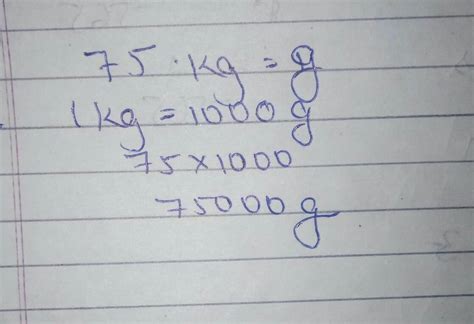 75 . kg = g
1 kg = 1000 g
75 x 1000
75000 g